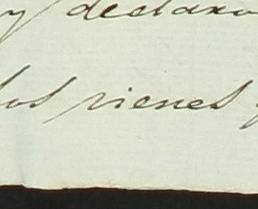 y declaro
los vienes